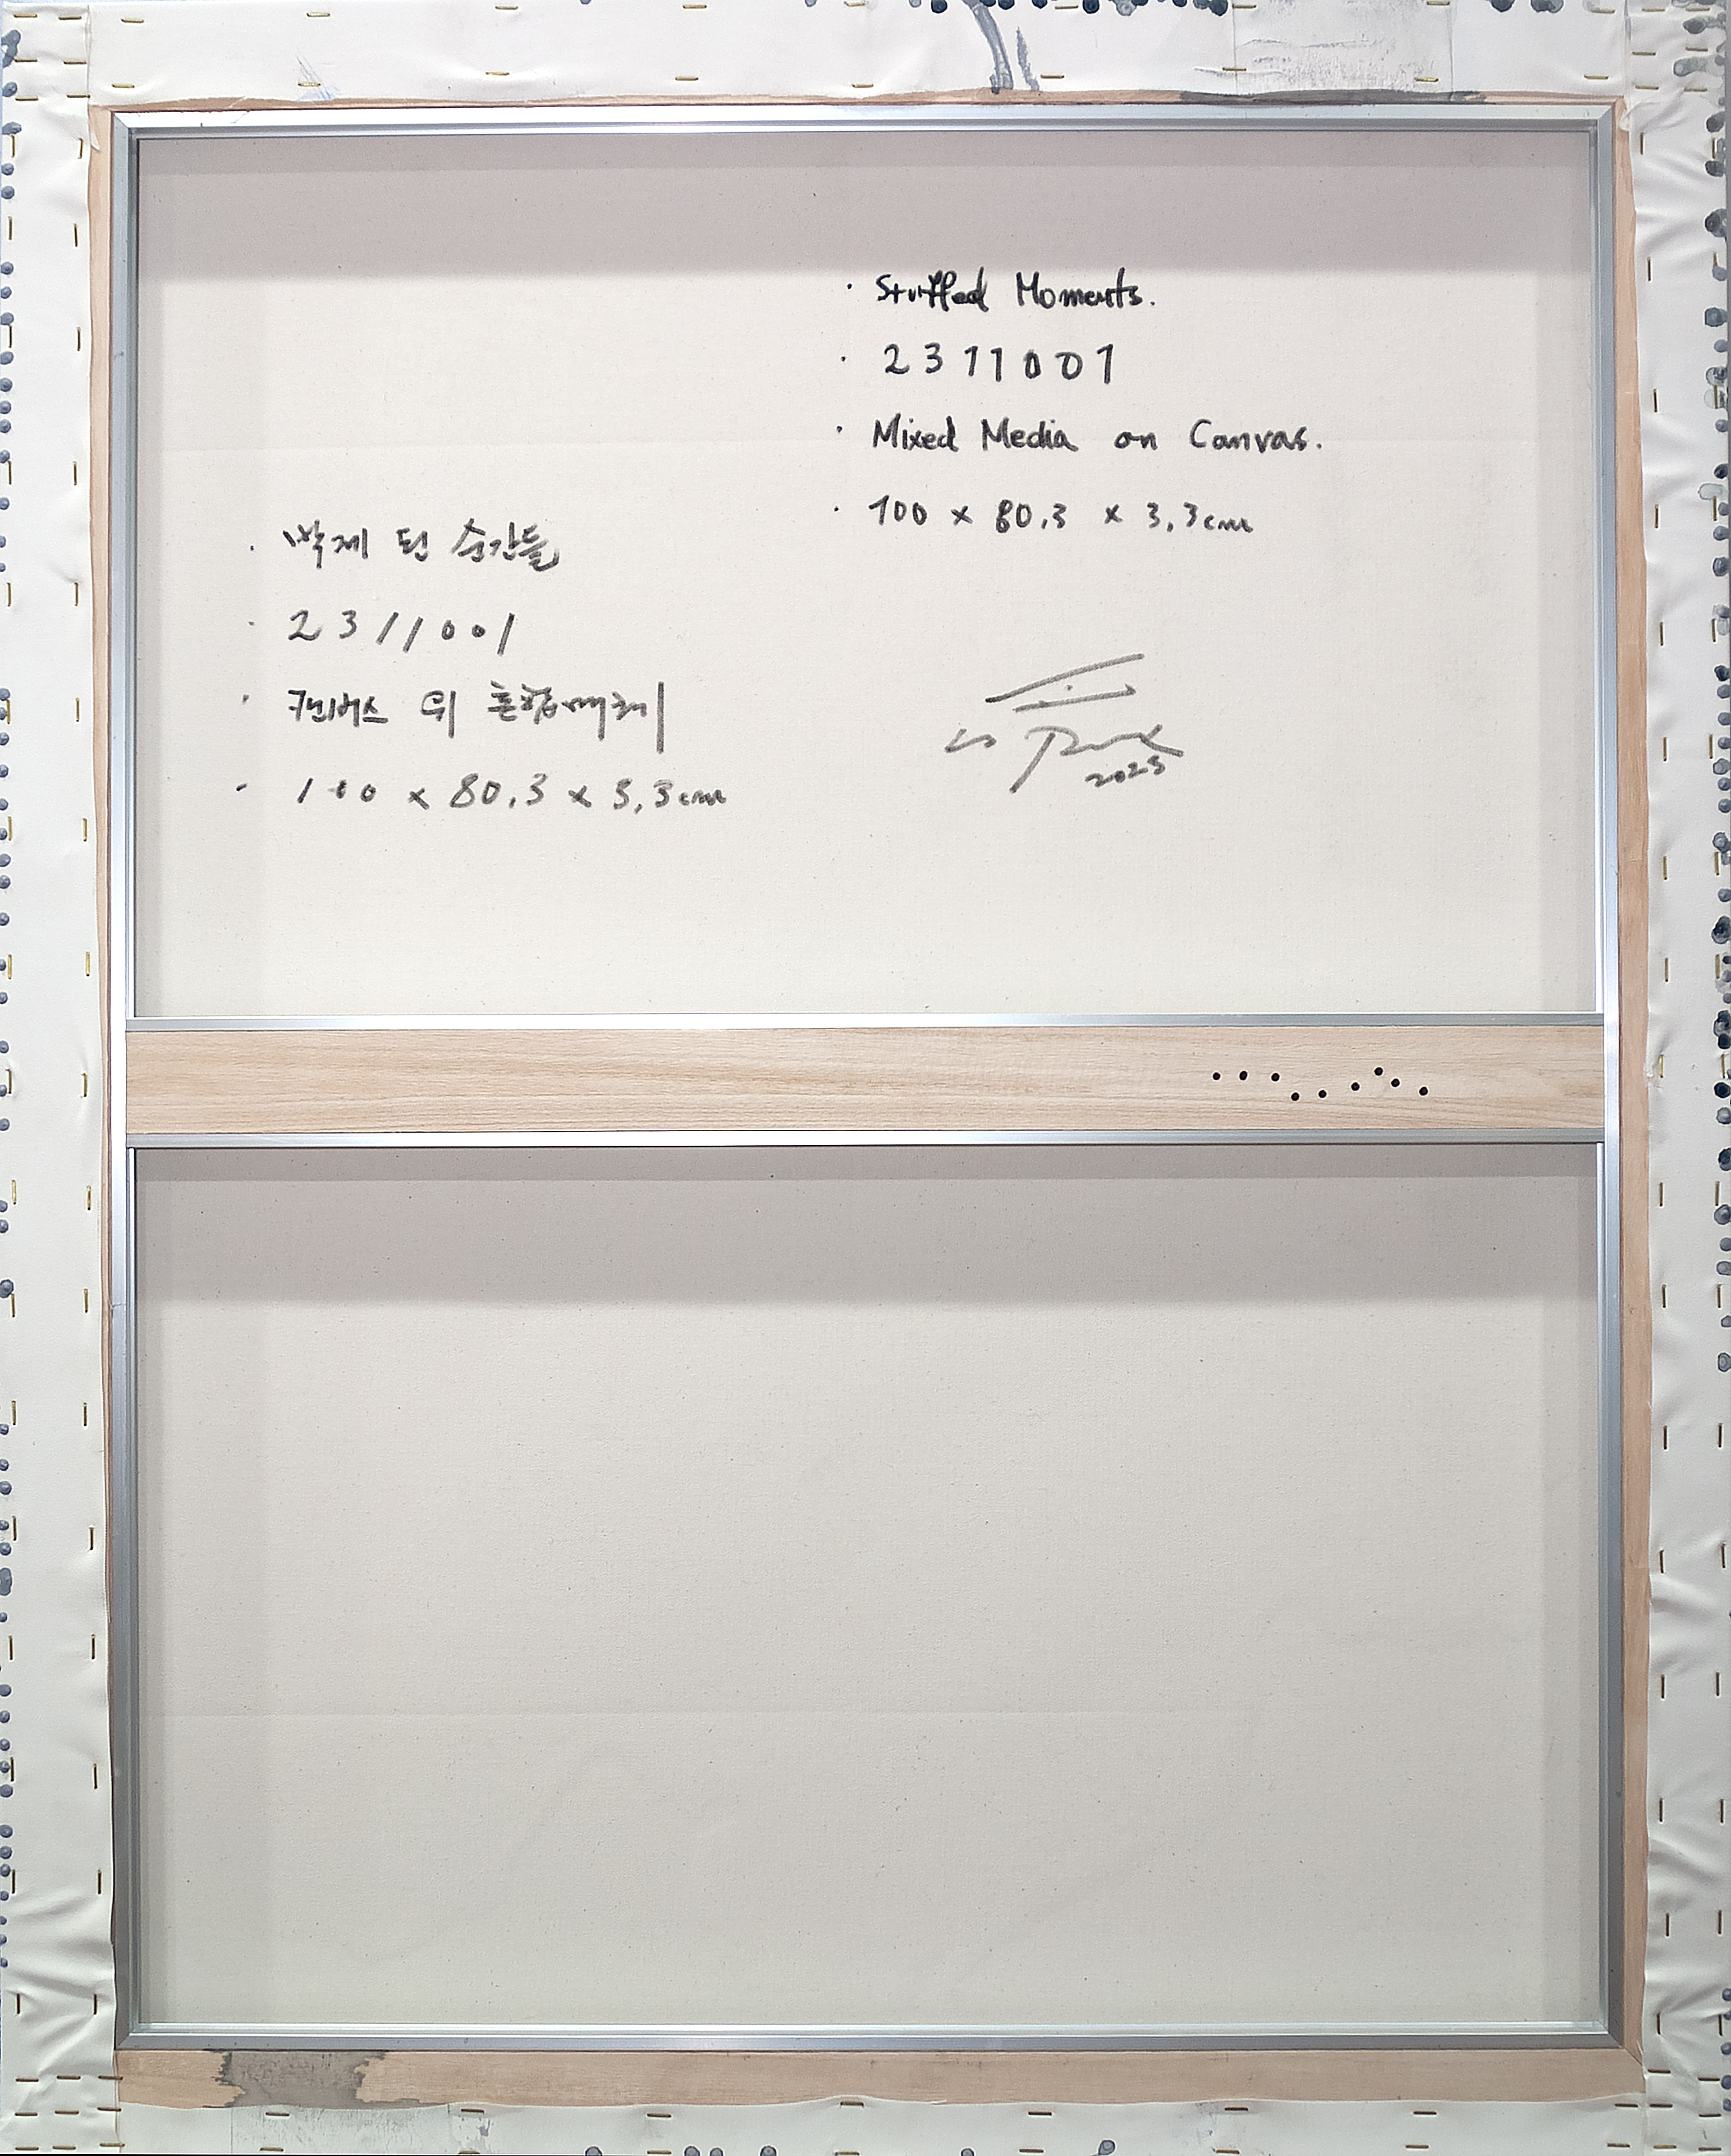 · Stuffed Moments.
· 2311001
· Mixed Media on Canvas.
· 100 x 80.3 x 3.3cm
· 박제 된 순간들
· 2311001
· 캔버스 위 혼합매체
· 100 x 80.3 x 3.3cm
2023